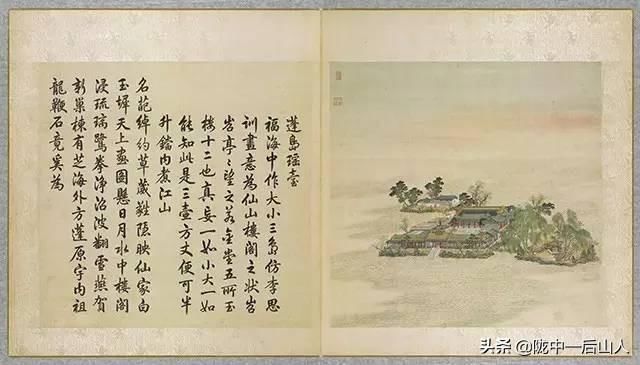 蓬島瑤臺
福海中作大小三島倣李思
訓畫意為仙山樓閣之狀岧
岧亭〻望之若金堂五所玉
樓十二也真妄一如小大一如
能知此是三壺方丈便可半
升鐺內煮江山
名葩綽約草葳蕤隱映仙家白
玉墀天上畫圖懸日月水中樓閣
浸琉璃鷺拳淨沼波翻雪燕賀
新巢棟有芝海外方蓬原宇內祖
龍鞭石竟奚為
头条 @陇中一后山人